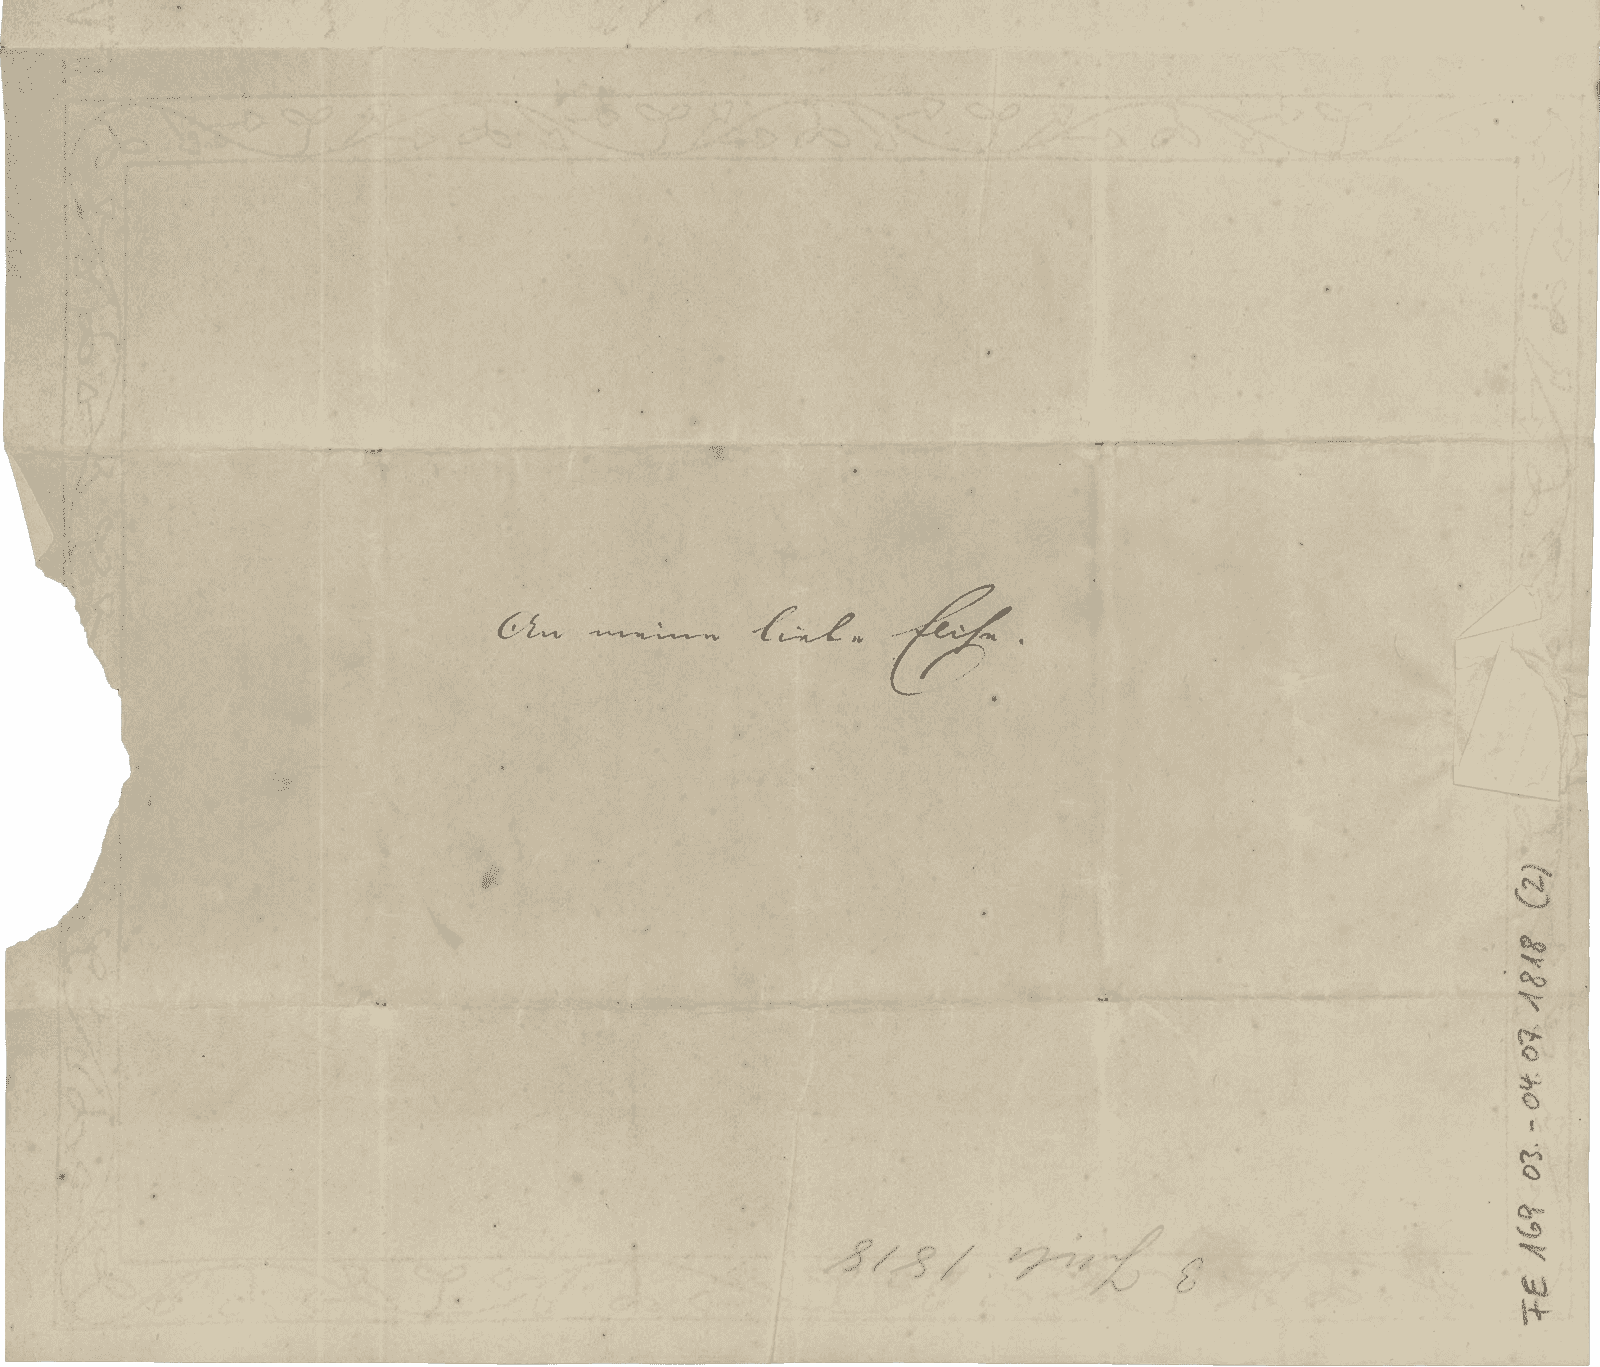 An meine liebe Elise.
3 Juli 1818
FE 169 03.-04.07.1818 (2)